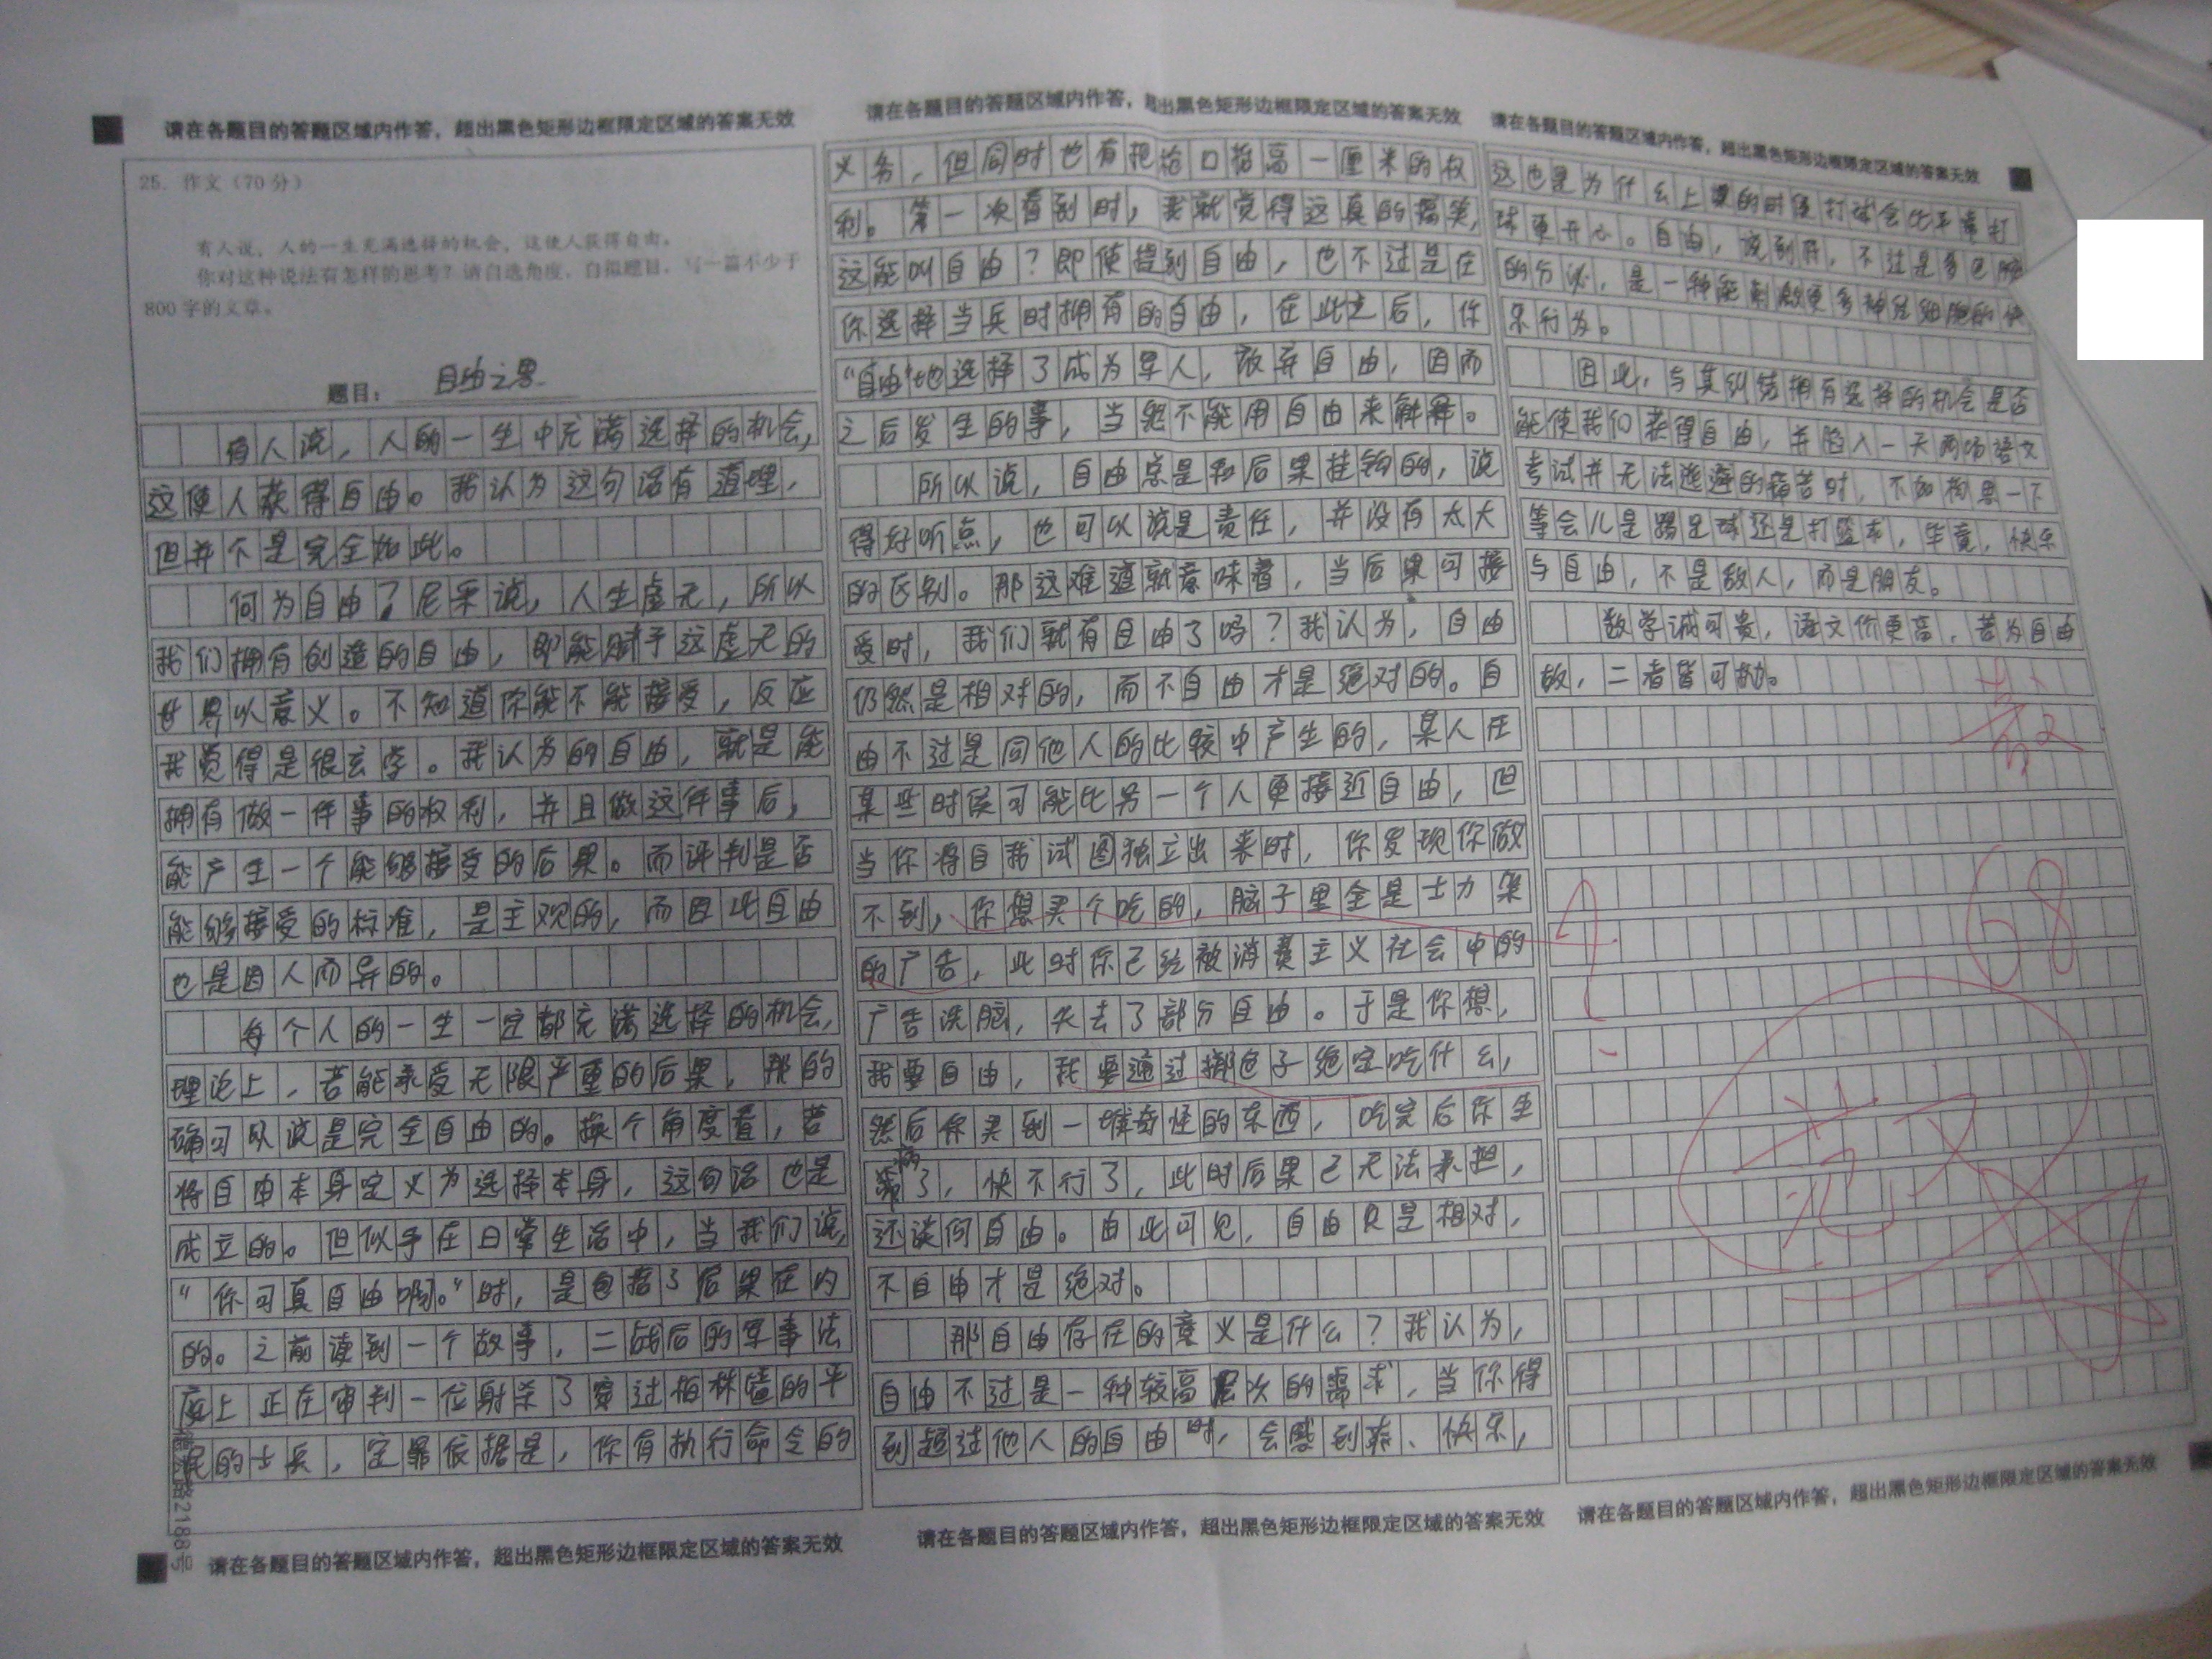 请在各题目的答题区域内作答，超出黑色矩形边框限定区域的答案无效
25. 作文（70分）
有人说，人的一生充满选择的机会，这使人获得自由。
你对这种说法有怎样的思考？请自选角度，自拟题目，写一篇不少于
800字的文章。
题目：自由之思
有人说，人的一生中充满选择的机会，
这使人获得自由。我认为这句话有道理，
但并不是完全如此。
何为自由？尼采说，人生虚无，所以
我们拥有创造的自由，即能赋予这虚无的
世界以意义。不知道你能不能接受，反应
我觉得是很玄学。我认为的自由，就是能
拥有做一件事的权利，并且做这件事后，
能产生一个能够接受的后果。而评判是否
能够接受的标准，是主观的，而因此自由
也是因人而异的。
每个人的一生一定都充满选择的机会，
理论上，若能承受无限严重的后果，那的
确可以说是完全自由的。换个角度看，若
将自由本身定义为选择本身，这句话也是
成立的。但似乎在日常生活中，当我们说，
“你可真自由啊。”时，是包括了后果在内
的。之前读到一个故事，二战后的军事法
庭上正在审判一位射杀了穿过柏林墙的平
民的士兵，定罪依据是，你有执行命令的
2188号
请在各题目的答题区域内作答，超出黑色矩形边框限定区域的答案无效
请在各题目的答题区域内作答，超出黑色矩形边框限定区域的答案无效
义务，但同时也有把枪口抬高一厘米的权
利。第一次看到时，我就觉得这真的搞笑，
这能叫自由？即使提到自由，也不过是在
你选择当兵时拥有的自由，在此之后，你
“自由”地选择了成为军人，放弃自由，因而
之后发生的事，当然不能用自由来解释。
所以说，自由总是和后果挂钩的，说
得好听点，也可以说是责任，并没有太大
的区别。那这难道就意味着，当后果可接
受时，我们就有自由了吗？我认为，自由
仍然是相对的，而不自由才是绝对的。自
由不过是同他人的比较中产生的，某人在
某些时候可能比另一个人更接近自由，但
当你将自我试图独立出来时，你发现你做
不到，你想买个吃的，脑子里全是士力架
的广告，此时你已经被消费主义社会中的
广告洗脑，失去了部分自由。于是你想，
我要自由，我要通过掷色子绝定吃什么，
然后你买到一堆奇怪的东西，吃完后你生
病了，快不行了，此时后果已无法承担，
还谈何自由。由此可见，自由只是相对，
不自由才是绝对。
那自由存在的意义是什么？我认为，
自由不过是一种较高层次的需求，当你得
到超过他人的自由时，会感到爽、快乐，
请在各题目的答题区域内作答，超出黑色矩形边框限定区域的答案无效
请在各题目的答题区域内作答，超出黑色矩形边框限定区域的答案无效
这也是为什么上课的时候打球会比平常打
球更开心。自由，说到底，不过是多巴胺
的分泌，是一种能刺激更多神经细胞的快
乐行为。
因此，与其纠结拥有选择的机会是否
能使我们获得自由，并陷入一天两场语文
考试并无法逃避的痛苦时，不如构思一下
等会儿是踢足球还是打篮球，毕竟，快乐
与自由，不是敌人，而是朋友。
数学诚可贵，语文价更高，若为自由
故，二者皆可抛。
68
请在各题目的答题区域内作答，超出黑色矩形边框限定区域的答案无效